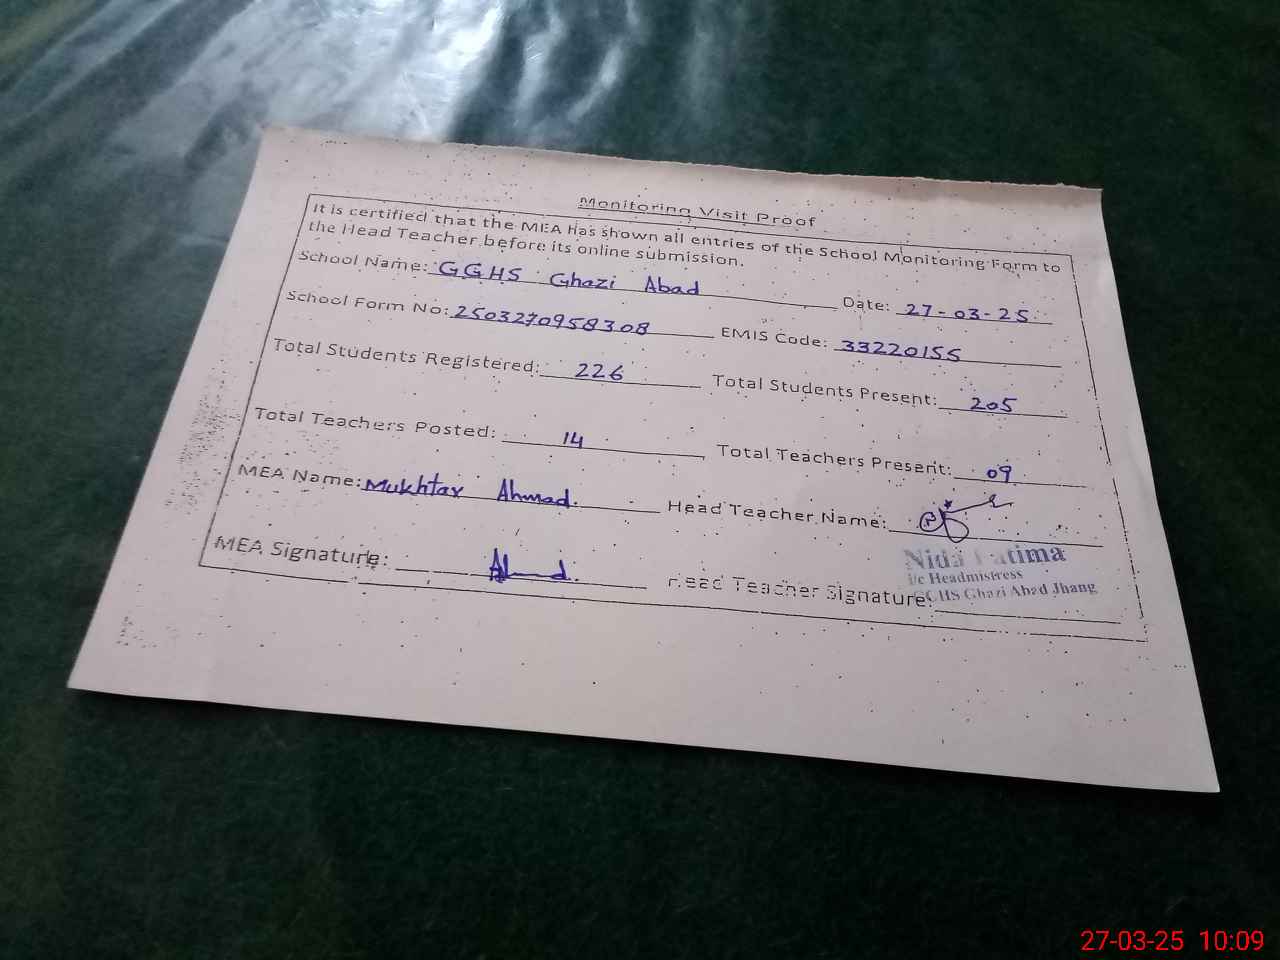 Monitoring Visit Proof
It is certified that the MEA has shown all entries of the School Monitoring Form to
the Head Teacher before its online submission.
School Name: GGHS Ghazi Abad Date: 27-03-25
School Form No: 2503270958308 EMIS Code: 33220155
Total Students Registered: 226 Total Students Present: 205
Total Teachers Posted: 14 Total Teachers Present: 09
MEA Name: Mukhtar Ahmad. Head Teacher Name:
Nida Fatima
i/c Headmistress
GGHS Ghazi Abad Jhang
MEA Signature: Ahmad. Head Teacher Signature:
27-03-25 10:09